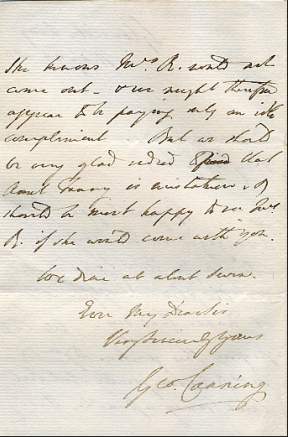 She knows Mrs. R. would not
come out – & we might therefore
appear to be paying only an idle
compliment But we should
be very glad indeed that
Aunt Fanny is mistaken, &
should be most happy to see Mrs
R. if she would come with you.
We dine at about seven.
Ever My Dear Sir
Very Sincerely Yours
Geo. Canning